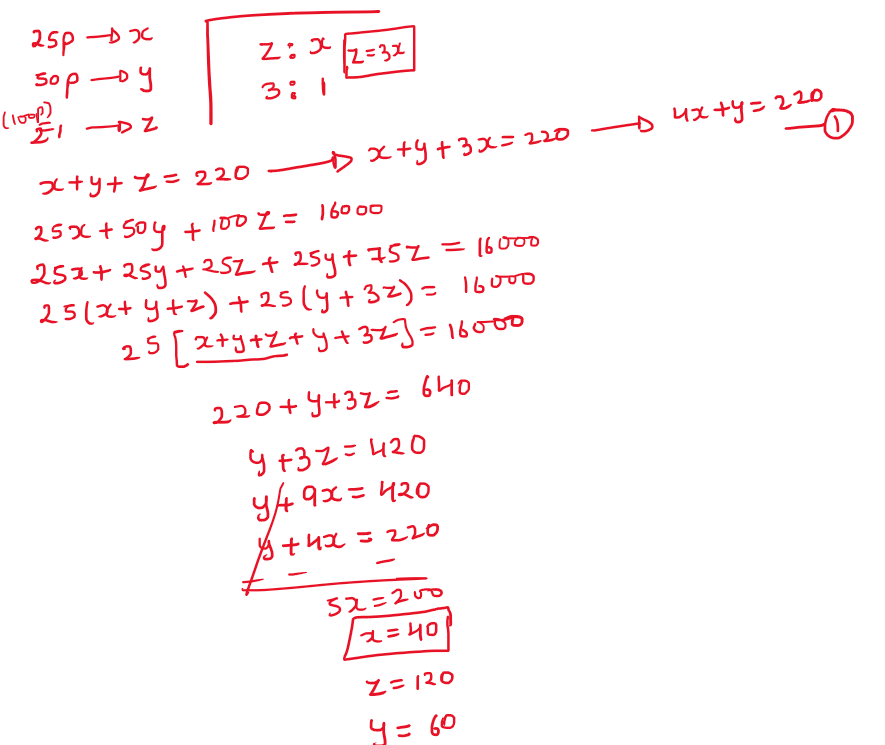 25p → x
50p → y
(100p)
£1 → z
z : x z=3x
3 : 1
x+y+z = 220 → x+y+3x=220 → 4x+y=220 — ①
25x+50y+100z = 16000
25x+25y+25z+25y+75z = 16000
25(x+y+z)+25(y+3z) = 16000
25[x+y+z+y+3z] = 16000
220+y+3z = 640
y+3z=420
y+9x=420
y+4x=220
— — —
5x=200
x=40
z=120
y=60